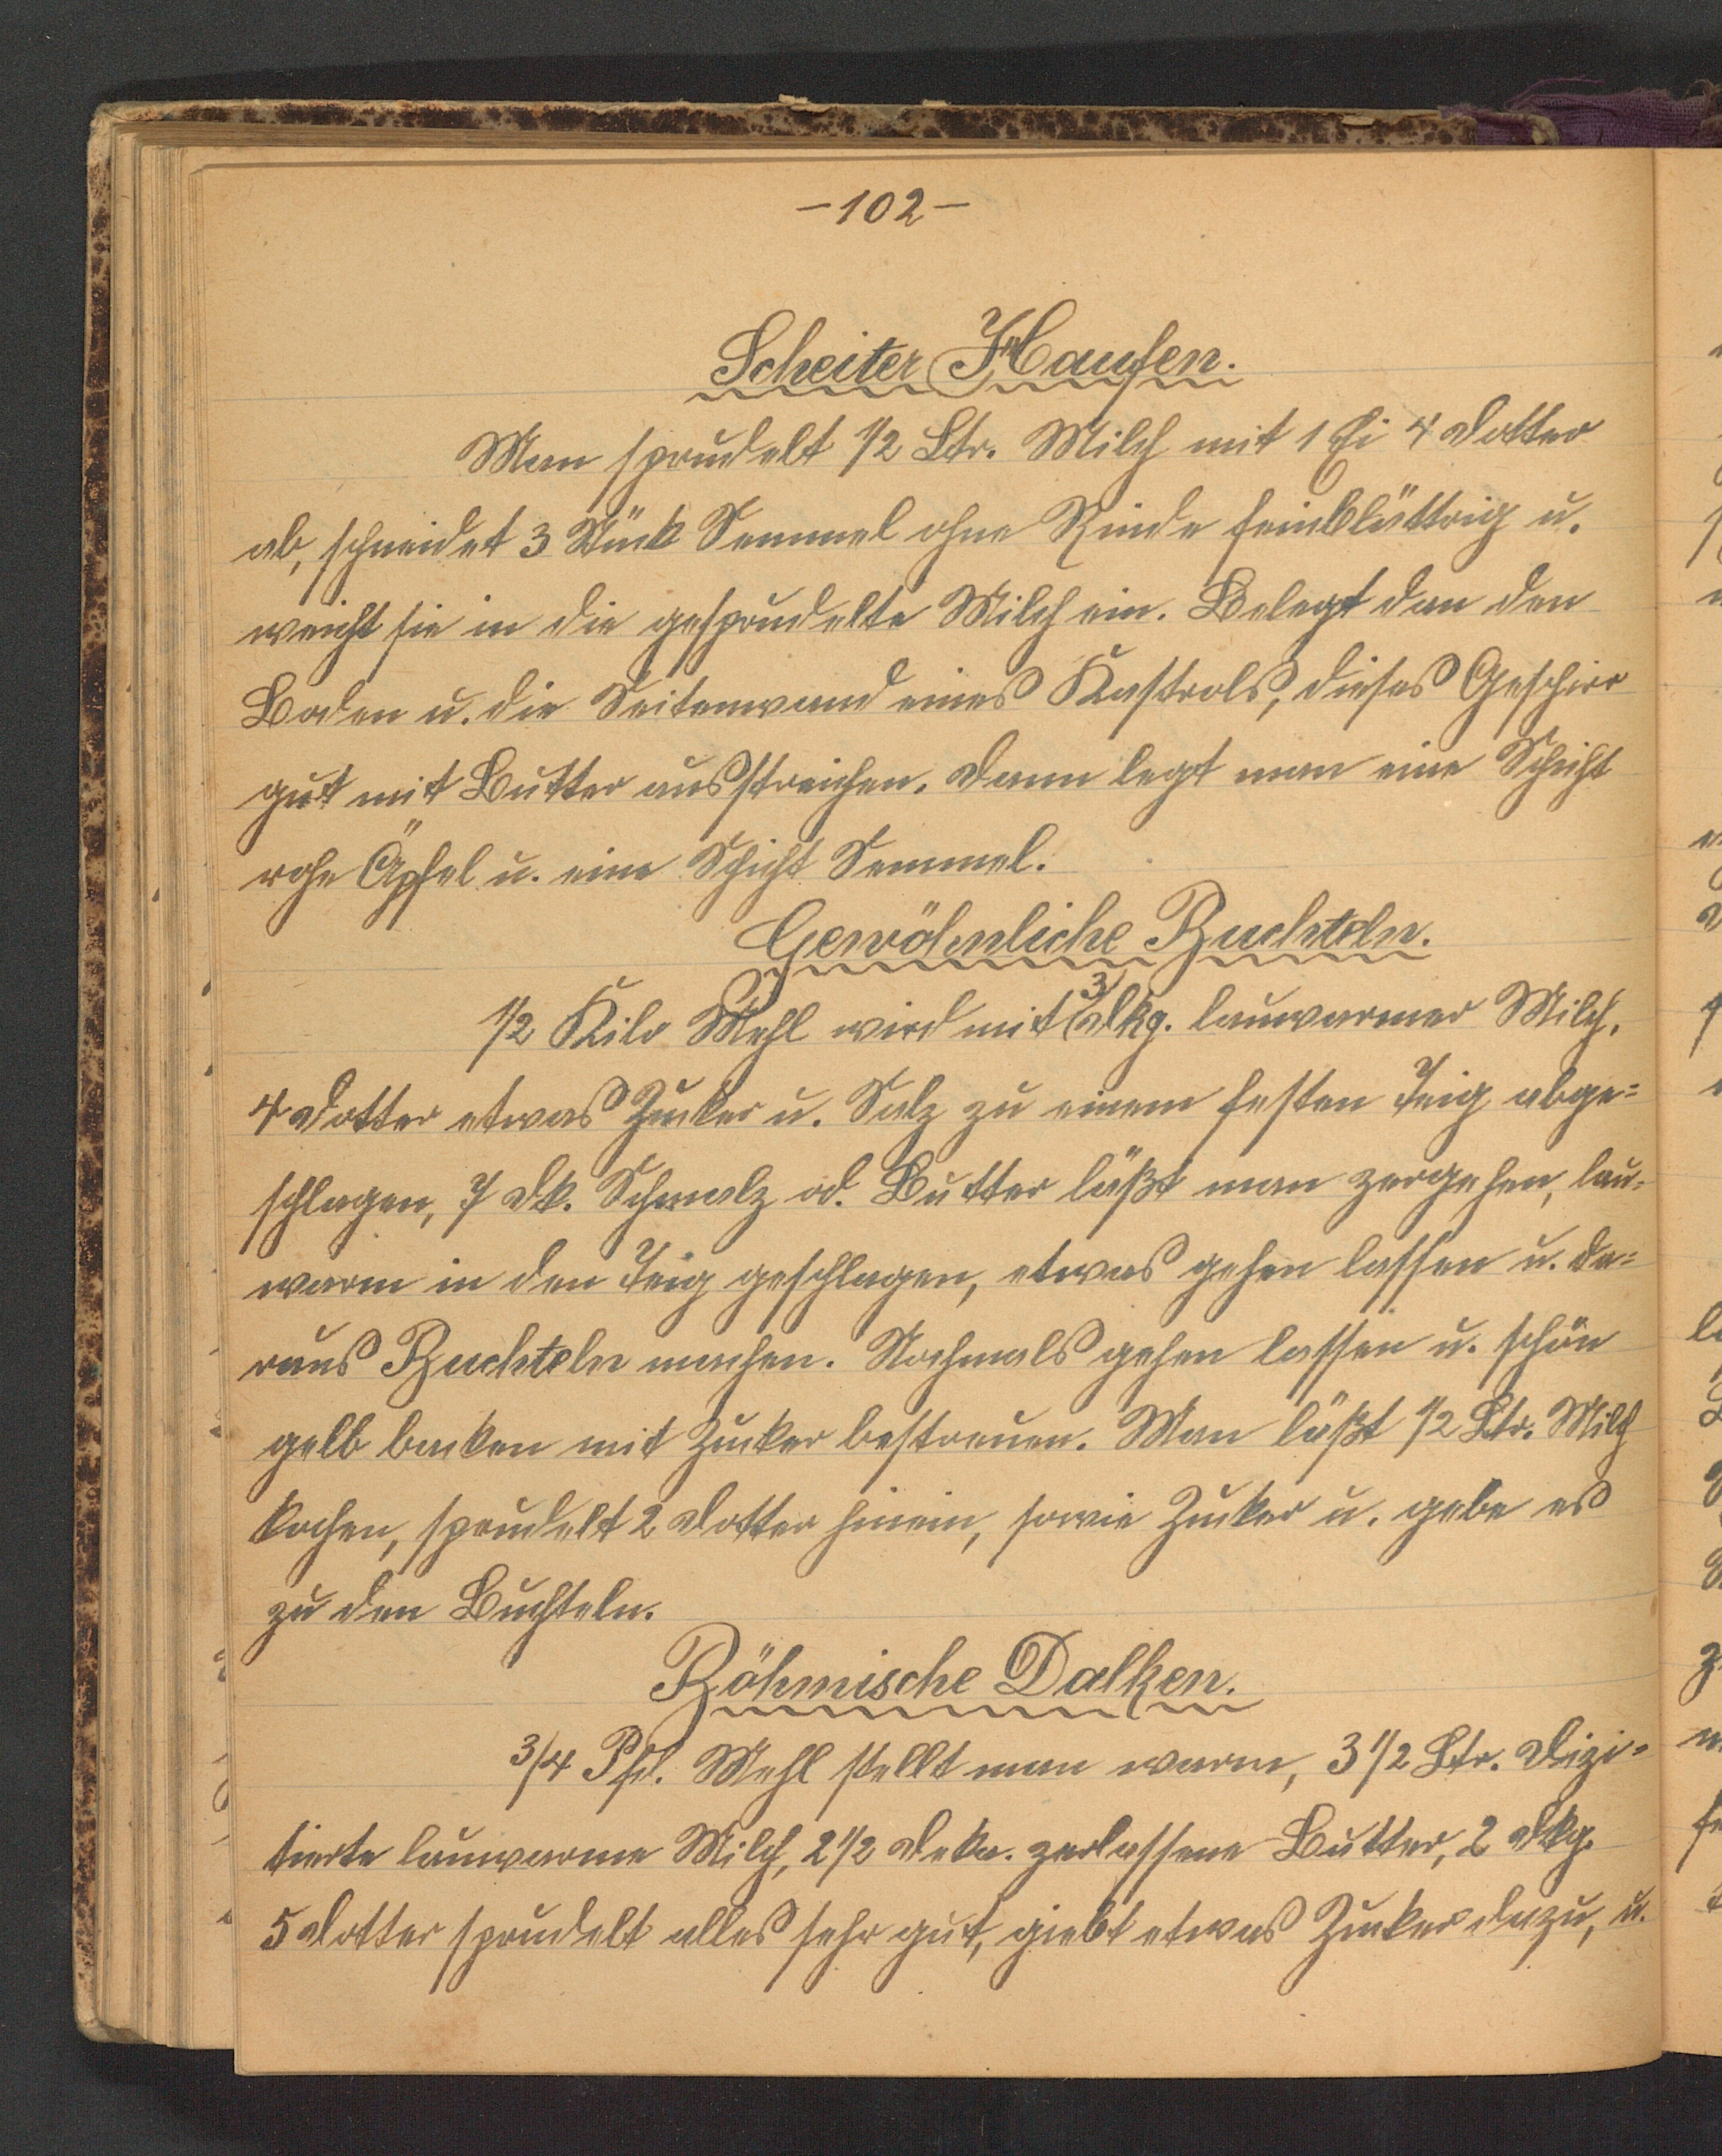 -102-
Scheiter Haufen.
Man sprudelt 1/2 Ltr. Milch mit 1 Ei 4 Dotter
ab, schneidet 3 Stück Semmel ohne Rinde feinblättrig u.
weicht sie in die gesprudelte Milch ein. Belegt dan den
Boden u. die Seitenwand eines Kastrols, dieses Geschirr
gut mit Butter ausstreichen. Dann legt man eine Schicht
rohe Äpfel u. eine Schicht Semmel.
Gewöhnliche Buchteln.
1/2 Kilo Mehl wird mit 3 Dkg. lauwarmer Milch,
4 Dotter etwas Zucker u. Salz zu einem festen Teig abge=
schlagen, 7 Dk. Schmalz od. Butter läßt man zergehen, lau=
warm in den Teig geschlagen, etwas gehen lassen u. da=
raus Buchteln machen. Nochmals gehen lassen u. schön
gelb backen mit Zucker bestreuen. Man läßt 1/2 Ltr. Milch
kochen, sprudelt 2 Dotter hinein, sowie Zucker u. gebe es
zu den Buchteln.
Böhmische Dalken.
3/4 Pfd. Mehl stellt man warm, 3 1/2 Ltr. Dizi=
tierte lauwarme Milch, 2 1/2 Deka. zerlassene Butter, 2 Dkg.
5 Dotter sprudelt alles sehr gut, giebt etwas Zucker dazu, u.